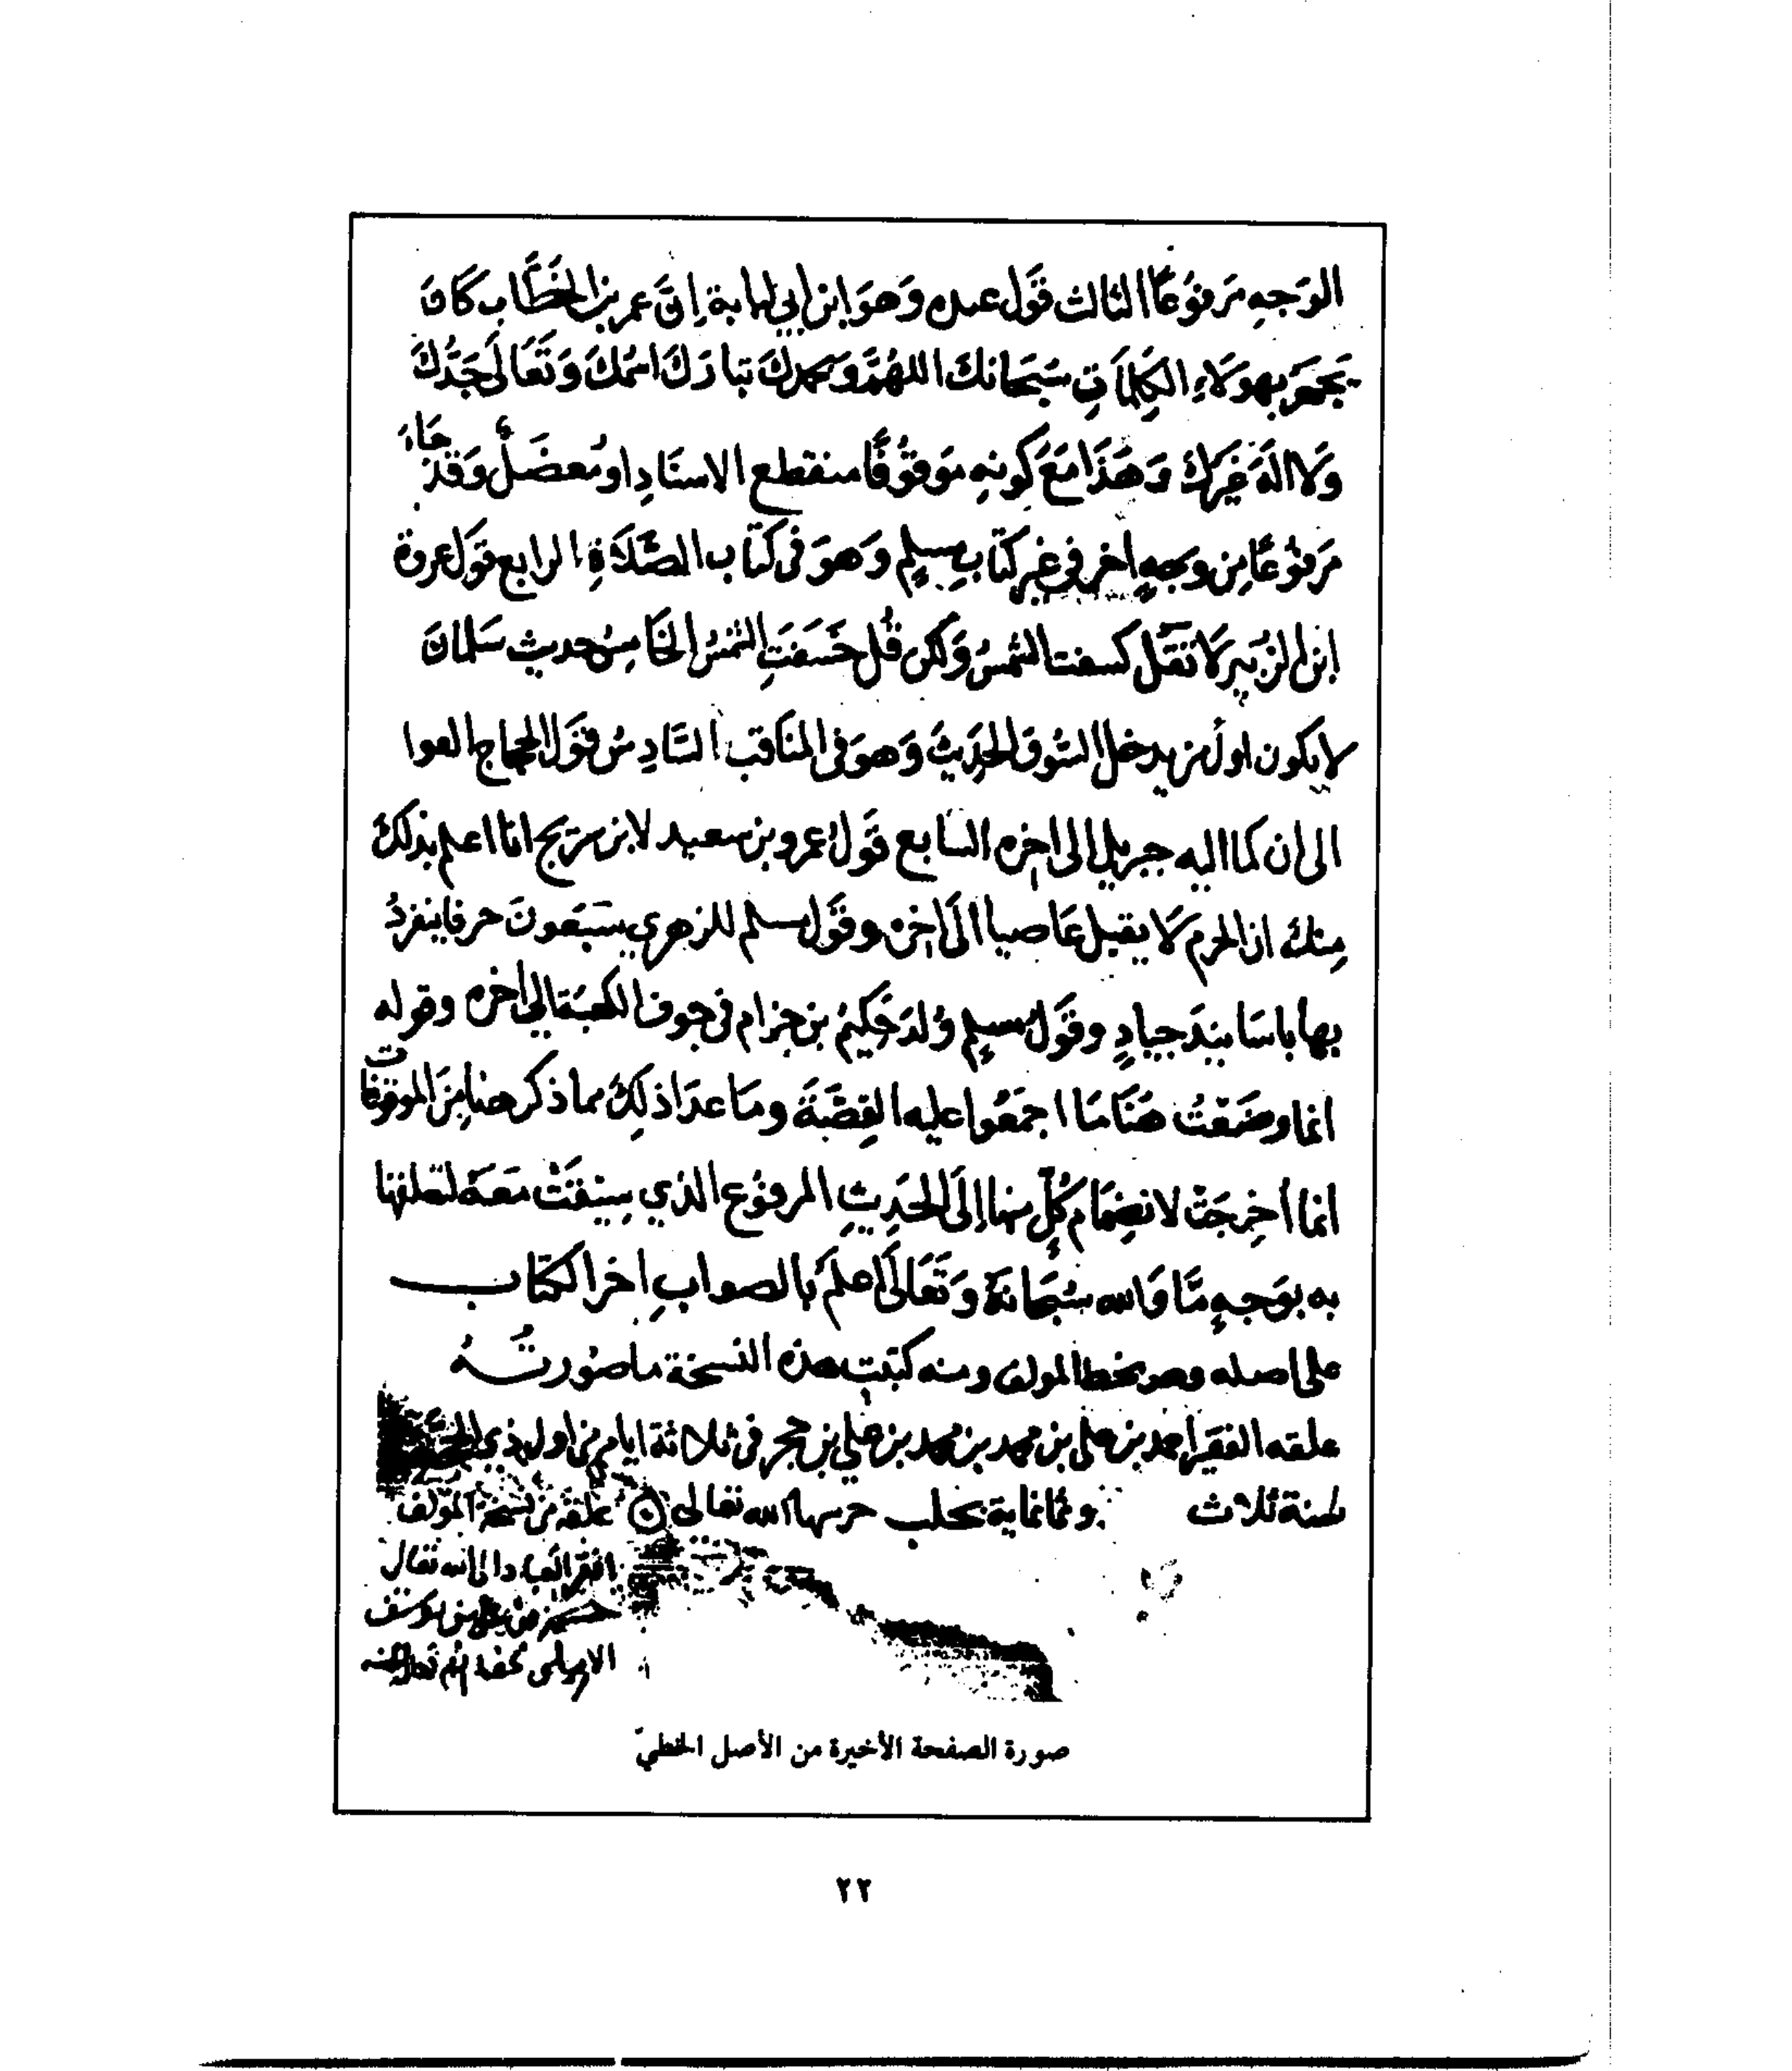 الوَجهِ مَرفوُعًا الثالث قَول عبده وَهوَ ابن ابي لبابة اِنَّ عمر بن الخَطَّابِ كَانَ
يَجهَر بهوَلَاءِ الكَلِمَاتِ سُبحَانك اللهُمَّ وبحمدكَ تبَارَكَ اسمُكَ وَتَعَالَى جَدُّكَ
وَلَا الهَ غَيرك وَهَذَا مَعَ كونِهِ مَوقوُفًا منقطع الاسنَادِ او مُعضَلٌ وَقَد جَاءَ
مَرفوُعًا مِن وجهٍ اخر في غير كتَابِ مسلمٍ وَهوَ في كتَاب الصَّلَاةِ الرابع قوَل عروة
ابن الزبَير لَا تقُل كسفت الشمسُ وَلكن قُل خَسَفَتِ الشمسُ الخَامِسُ حديث سَلمانَ
لا يكون اول من يدخل السُّوق الحَدِيثَ وَهوَ في المنَاقب السَّادِسُ قَول الحجاج الفوا
الى ان كما الفه جبريل الى اخره السَّابع قَول عمرو بن سعيد لابن سريج انا اعلم بذلك
مِنك ان الحرم لَا يقبل عَاصيا الى اخِره وقَول مسلم للزهري يسَبعُونَ حرفا ينفردُ
بها باسَانيدَ جيادٍ وقَول مُسلمٍ وُلدَ حَكيمُ بن حِزام في جوف الكعبَة الى اخره وقوله
انما وضَعتُ هنَا مَا اجمَعُوا عليه القِصَّةَ ومَا عدَا ذلِك مما ذكر هنا مِنَ الموقوفات
انما اُخرِجَت لانضِمَام كُلٍّ منها اِلَى الحَدِيثِ المرفوُع الذي سِيقَتْ مَعَهُ لتعلقها
به بوَجهٍ مَّا وَالله سُبحَانهُ وَتَعَالَى اعلَم بالصوابِ اخر الكتاب
على اصله وهو بخط المولف ومنه كتبت هذه النسخة ما صُورتُهُ
علقه الفقير احمد بن على بن محمد بن محمد بن علي بن حجر في ثلاثة ايام من اول ذي الحجة
لسنة ثلاث وثمانماية بحلب حرسها الله تعالى علقه من نسخة المؤلف
افقر العباد الى الله تعالى
بن علي بن يوسف
صورة الصفحة الأخيرة من الأصل الخطيّ
٢٢